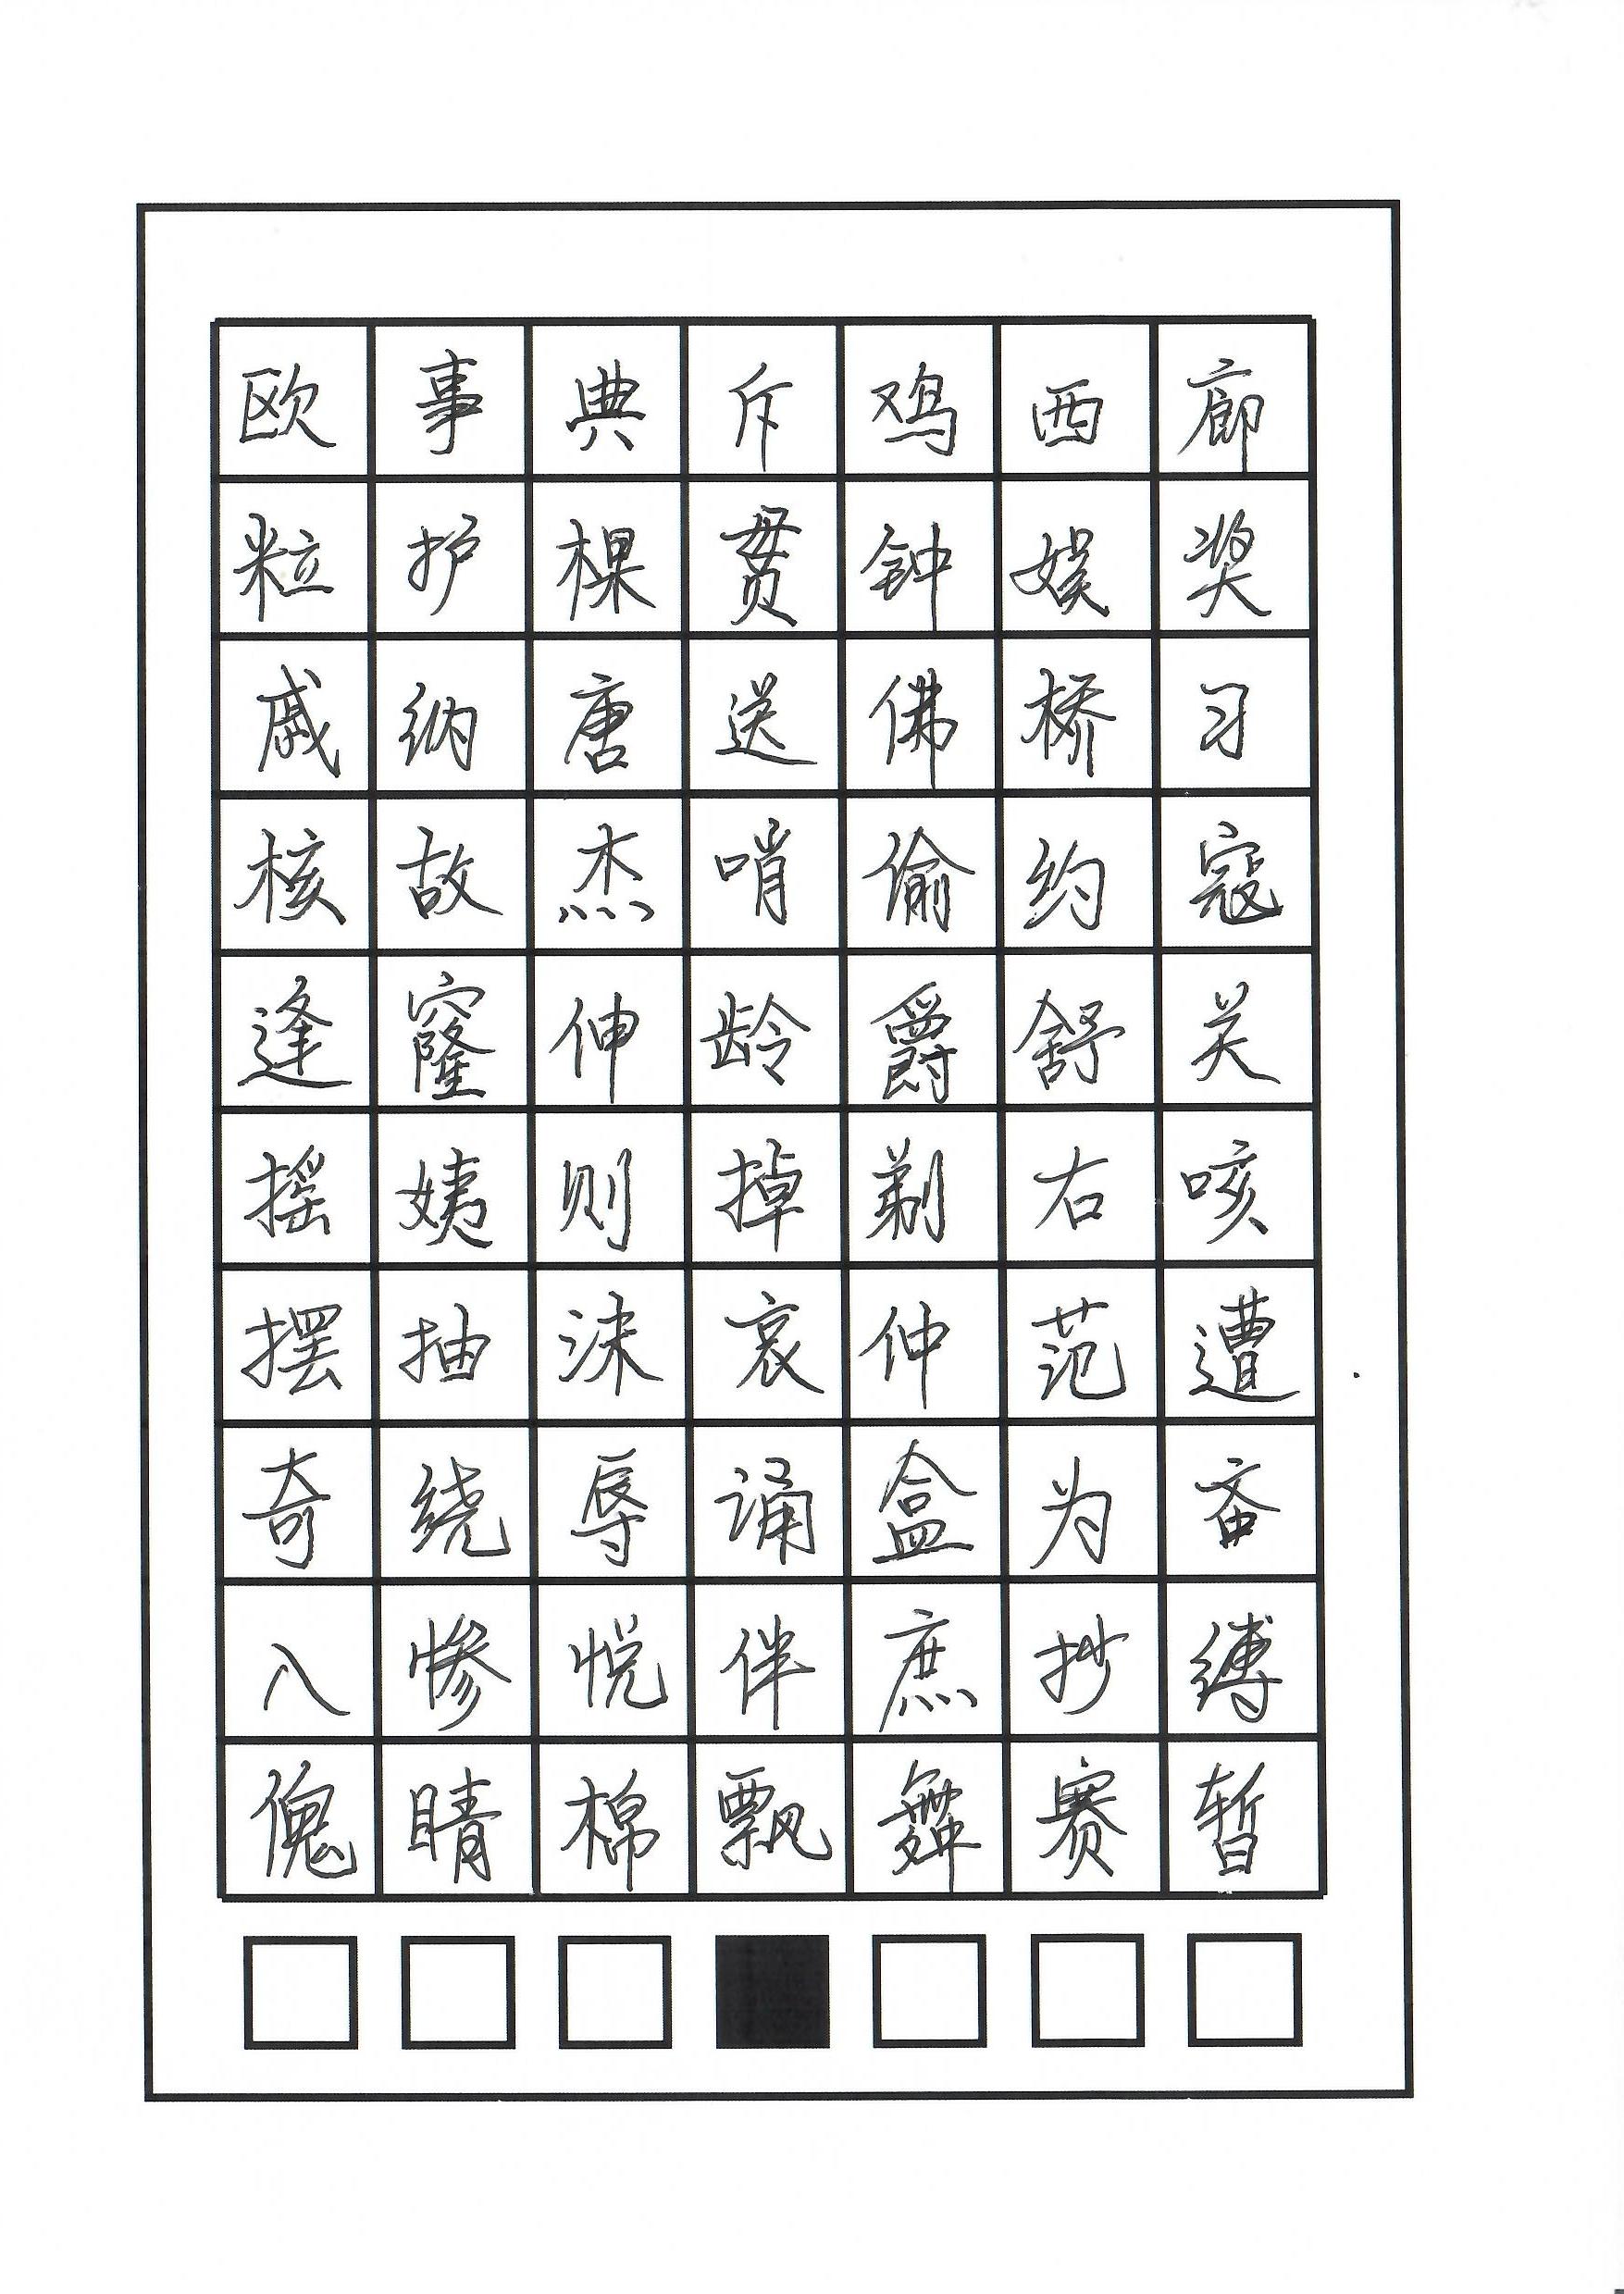 欧事典斥鸡西廊
粒护棵贯钟娱奖
戚纳唐送佛桥习
核故杰哨偷约寇
逢窿伸龄爵舒关
摇姨则掉剃右咳
摆抽沫哀仲范遭
奇绕辱诵盒为
入惨悦伴庶抄缚
傀睛棉飘舞赛暂